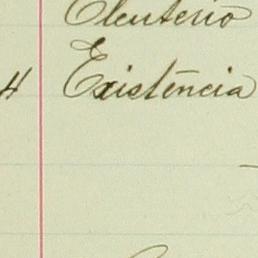 Eleuterio
4 Existência